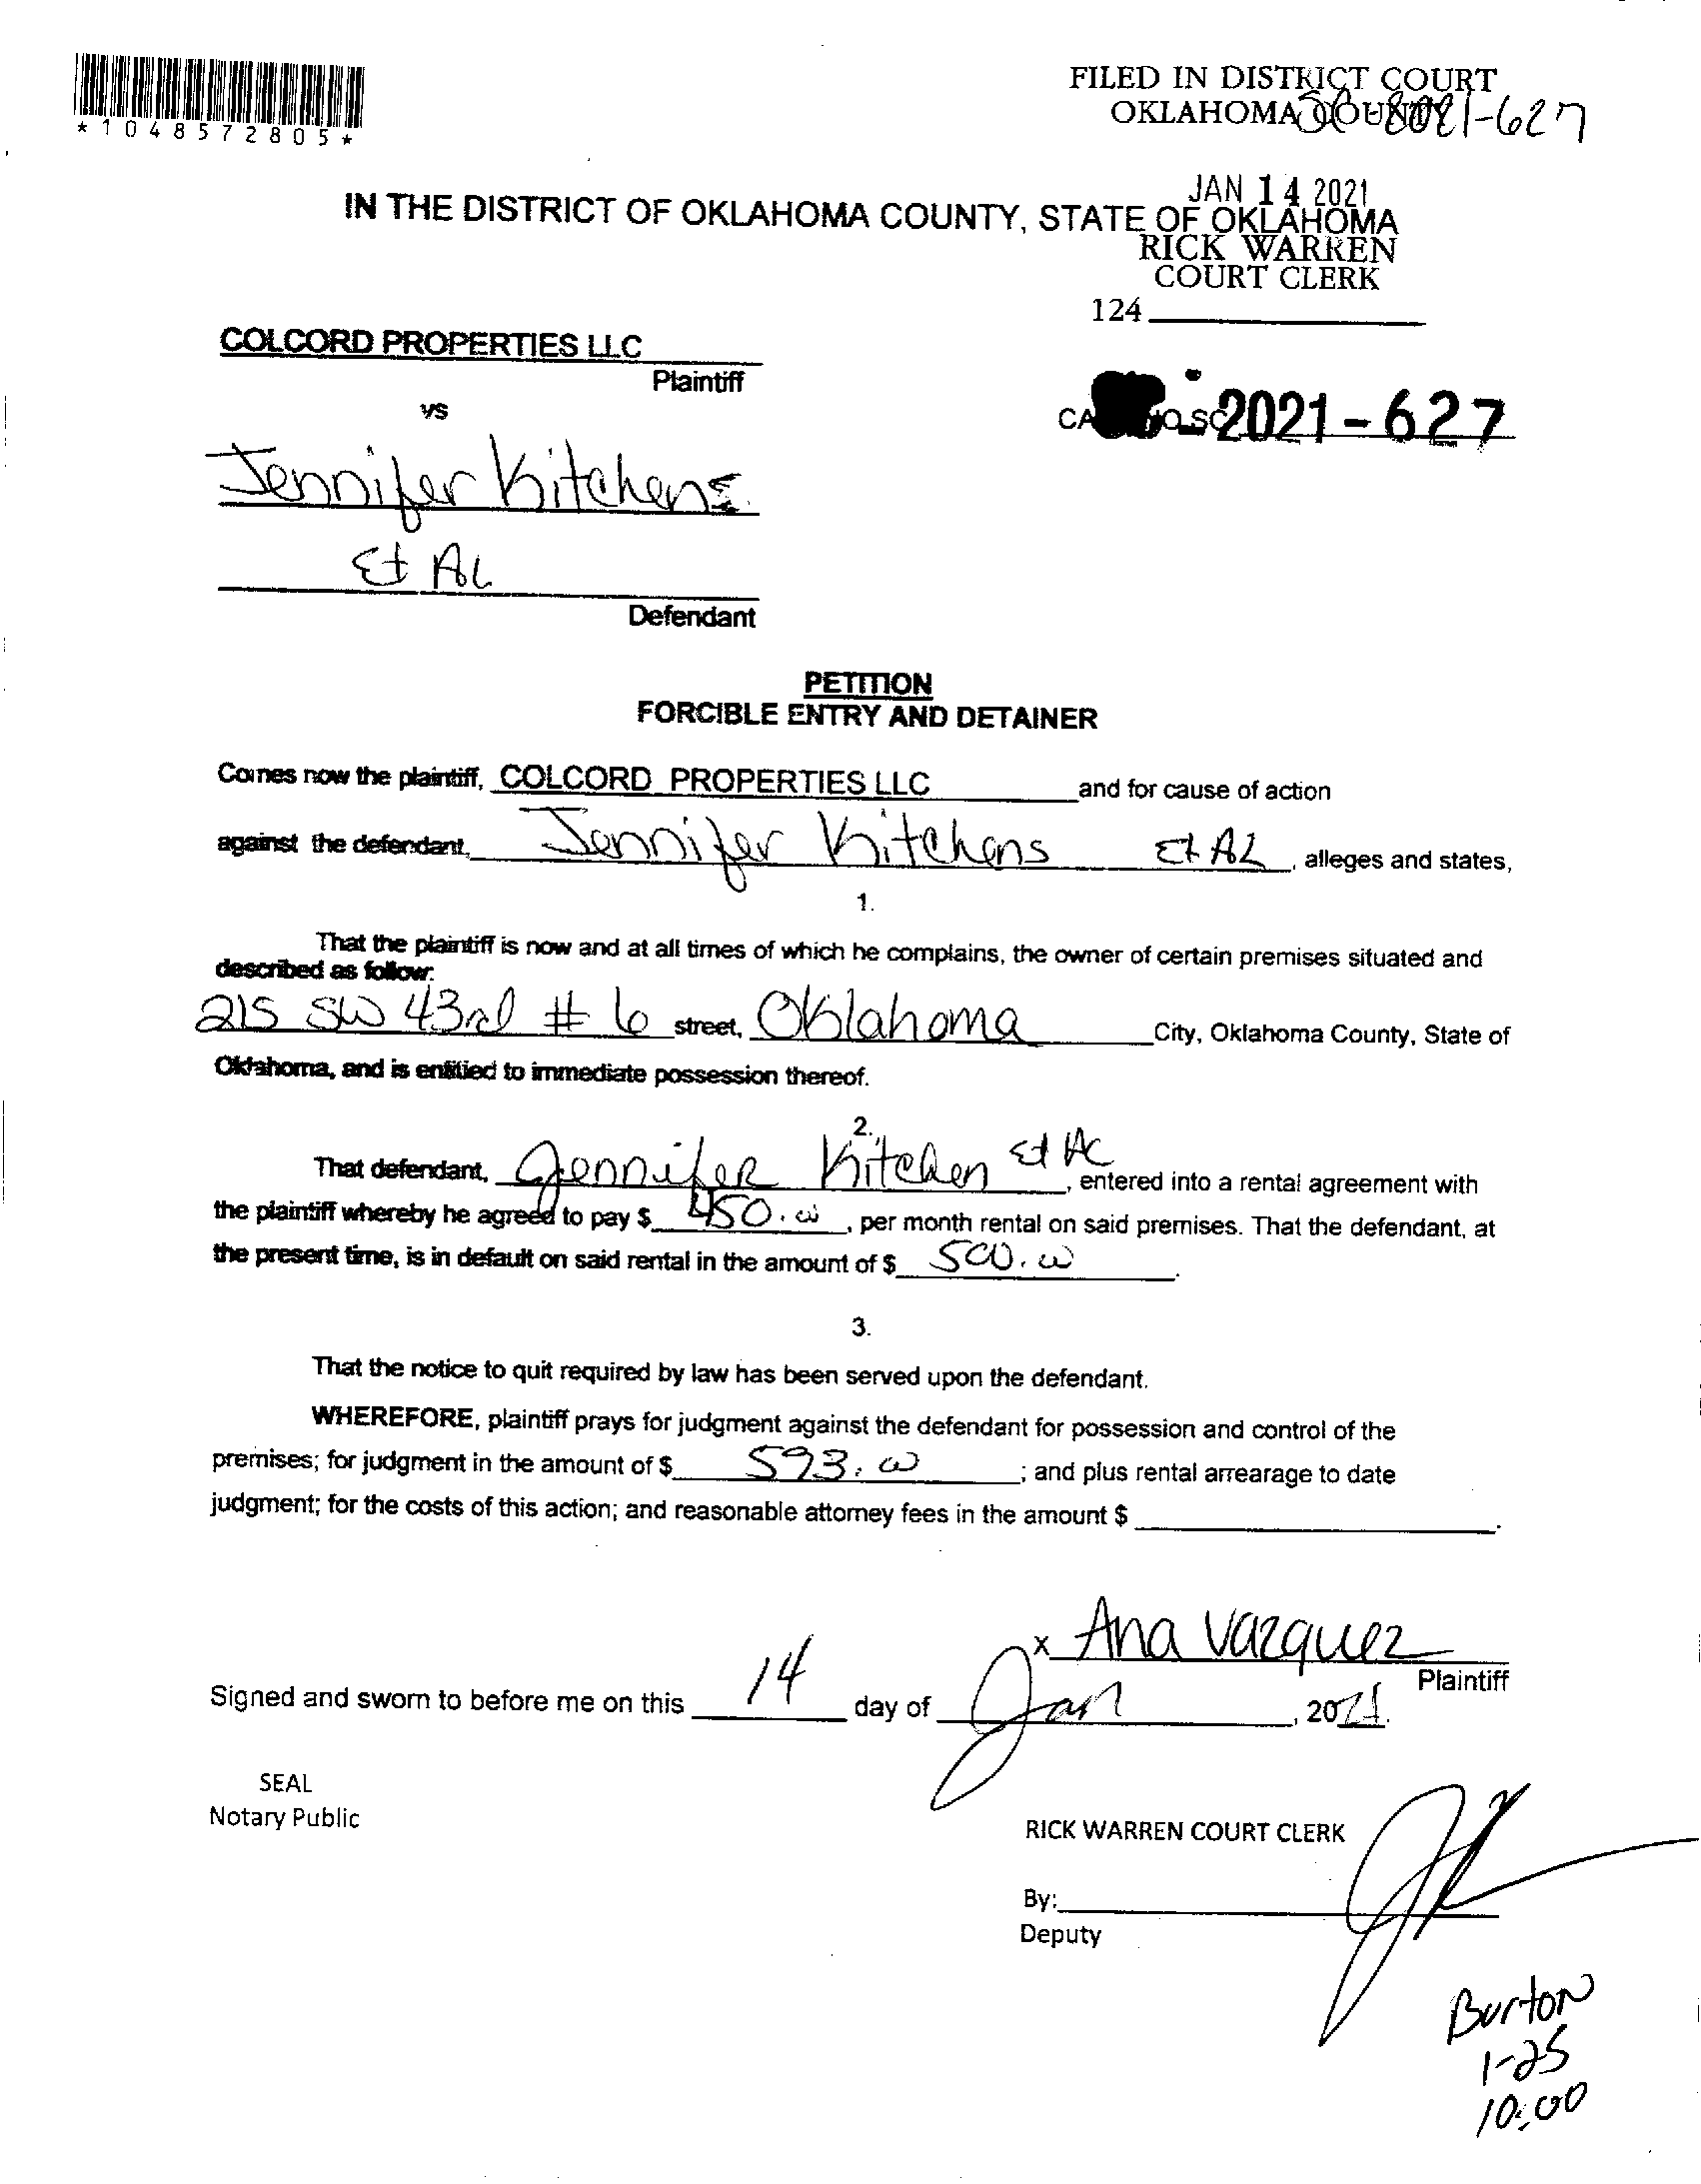 FILED IN DISTRICT COURT
OKLAHOMA COUNTY
SC-2021-627
*1048572805*
JAN 14 2021
IN THE DISTRICT OF OKLAHOMA COUNTY, STATE OF OKLAHOMA
RICK WARREN
COURT CLERK
124
COLCORD PROPERTIES LLC
Plaintiff
vs
2021-627
Jennifer Kitchens
Et AL
Defendant
PETITION
FORCIBLE ENTRY AND DETAINER
Comes now the plaintiff, COLCORD PROPERTIES LLC and for cause of action
against the defendant, Jennifer Kitchens Et AL, alleges and states,
1.
That the plaintiff is now and at all times of which he complains, the owner of certain premises situated and
described as follow:
215 SW 43rd # 6 street, Oklahoma City, Oklahoma County, State of
Oklahoma, and is entitled to immediate possession thereof.
2.
That defendant, Jennifer Kitchen Et AL, entered into a rental agreement with
the plaintiff whereby he agreed to pay $ 450.00, per month rental on said premises. That the defendant, at
the present time, is in default on said rental in the amount of $ 500.00.
3.
That the notice to quit required by law has been served upon the defendant.
WHEREFORE, plaintiff prays for judgment against the defendant for possession and control of the
premises; for judgment in the amount of $ 593.00; and plus rental arrearage to date
judgment; for the costs of this action; and reasonable attorney fees in the amount $ .
x Ana Vazquez
Plaintiff
Signed and sworn to before me on this 14 day of Jan, 2021.
SEAL
Notary Public
RICK WARREN COURT CLERK
By:
Deputy
Burton
1-25
10:00